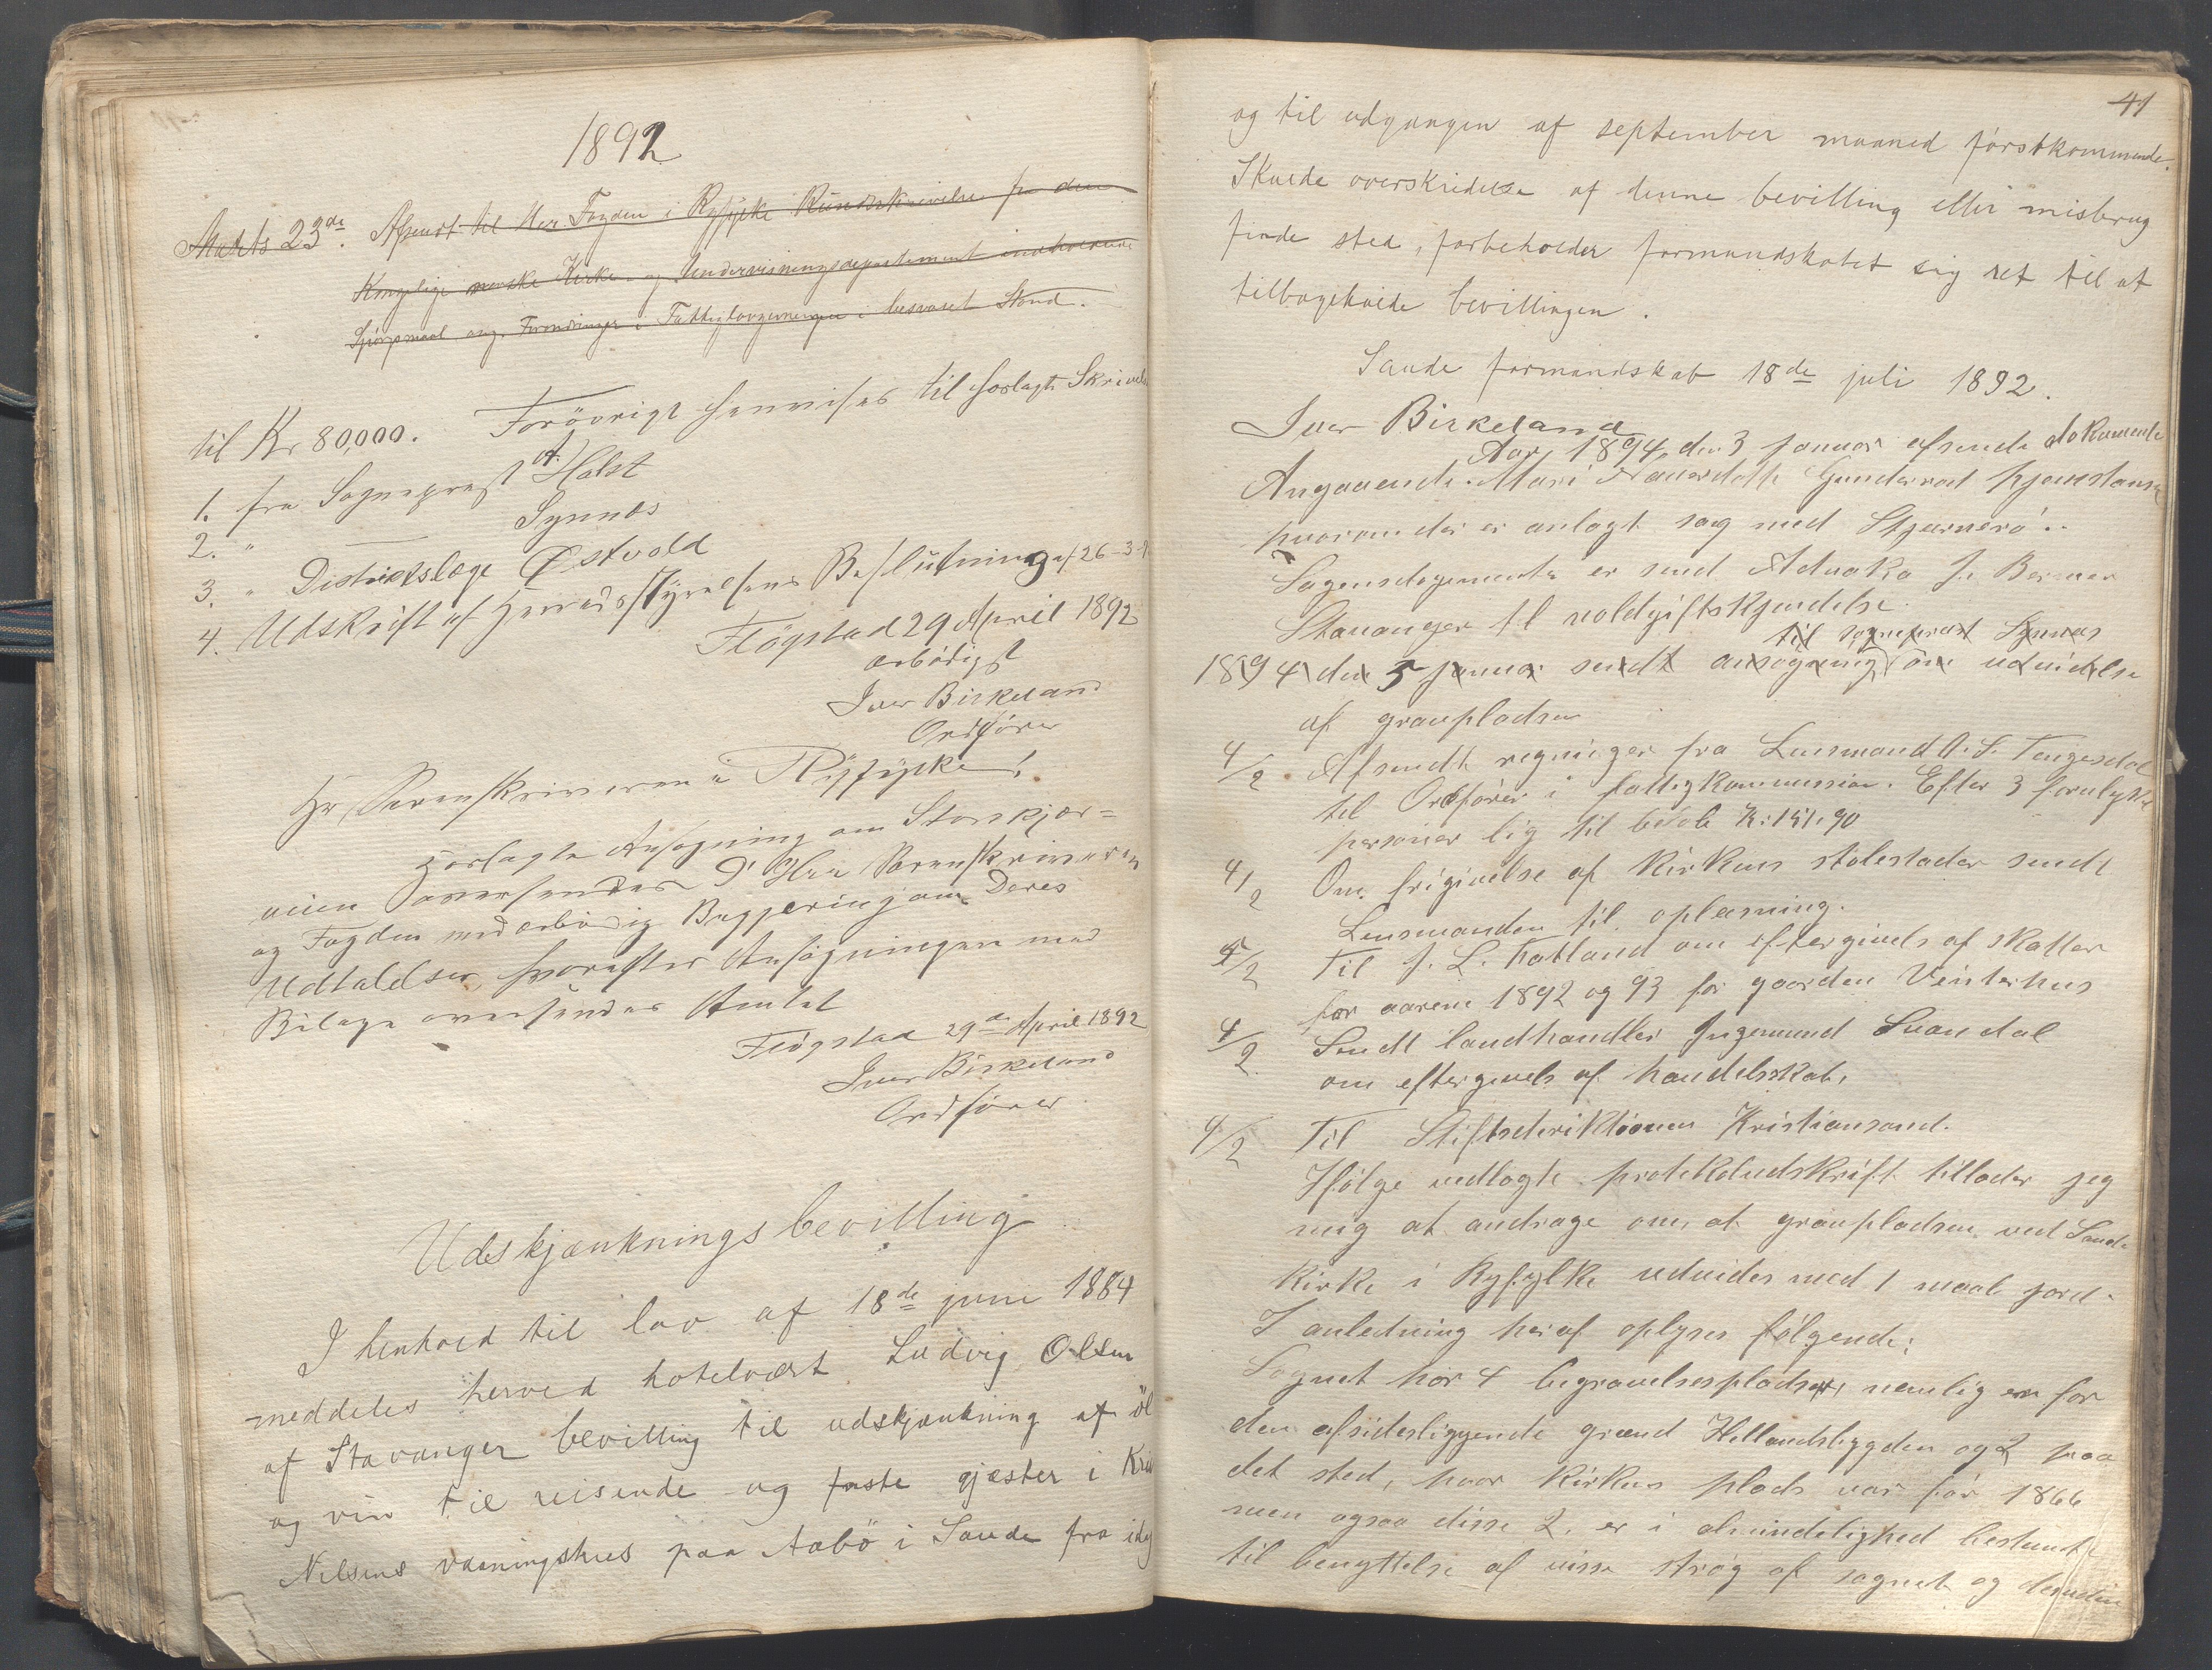 1892
Marts 23de. Afsendt til Herr Fogden i Ryfylke Rundskrivelse fra den
Kongelige norske Kirke- og Undervisningsdepartement indholdende
Spörgsmaal ang. Forandringer i Fattiglovgivningen i besvaret Stand.
til Kr 80,000. Forövrigt henvises til forlagte Skrivels
1. fra Sogneprest A. Holst
2. " Synnes
3. " Distriktslæge Østvold
4. Udskrift af Herredsstyrelsens Beslutning af 26-3-9
Flögstad 29 April 1892
ærbödigst
Iver Birkeland
Ordförer
Hr Sorenskriveren i Ryfylke!
Forlagte Ansøgning om Storskjær=
veien oversendes D'Herr Sorenskriveren
og Fogden med ærbödig Begjæring om Deres
Udtalelser, hvorefter Ansøgningen med
Bilage oversendes Amtet
Flögstad 29de April 1892
Iver Birkeland
Ordförer
Udskjænkningsbevilling
I henhold til lov af 18de juni 1884
meddeles herved hotelvært Ludvig Olsen
af Stavanger bevilling til udskjænkning af öl
og vin til reisende og faste gjæster i Kris
Nelsens vaaningshus paa Aabö i Saude fra idag
41
og til udgangen af september maaned förstkommende.
Skulde overskridelse af denne bevilling eller misbrug
finde sted, forbeholder formandskabet sig ret til at
tilbagekalde bevillingen.
Saude formandskab 18de juli 1892.
Iver Birkeland
Aar 1894 den 3 januar afsendt dokumente
Angaaende Mari hjemstavn
hvorom der er anlagt sag med Stjernerö.
Sagensdogumenter er send Advoka J. Berner
Stavanger til voldgiftskjendelse.
til sogneprest Synnes
1894 den 5 januar sendt ansögning om udvidelse
af gravpladsen
4/2 Afsendt regninger fra Lensmand O. S. Tengesdal
til Ordförer i fattigkommission. Efter 3 forulykte
personer lig til beløb K: 151,90
4/2 Om frigivelse af Kirkens stolestader sendt
Lensmanden til oplæsning.
5/2 Til J. L. Hatland om eftergivels af skatter
for aarene 1892 og 93 for gaarden Vinterhus
4/2 Sendt landhandler Ingemund Svandal
om eftergivels af handelsskat.
4/2 Til Stiftsderiktionen Kristiansand.
Ifölge vedlagte protokoludskrift tillader jeg
mig at andrage om at gravpladsen ved Saude
Kirke i Ryfylke udvides med 1 maal jord.
I anledning heraf oplyses fölgende:
Sognet har 4 begravelsespladser, nemlig en for
den afsidesliggende grænd Hellandsbygden og 2 paa
det sted, hvor Kirkens plads var för 1866
men ogsaa disse 2, er i almindelighed bestemt
til benyttelse af visse strøg af sognet og